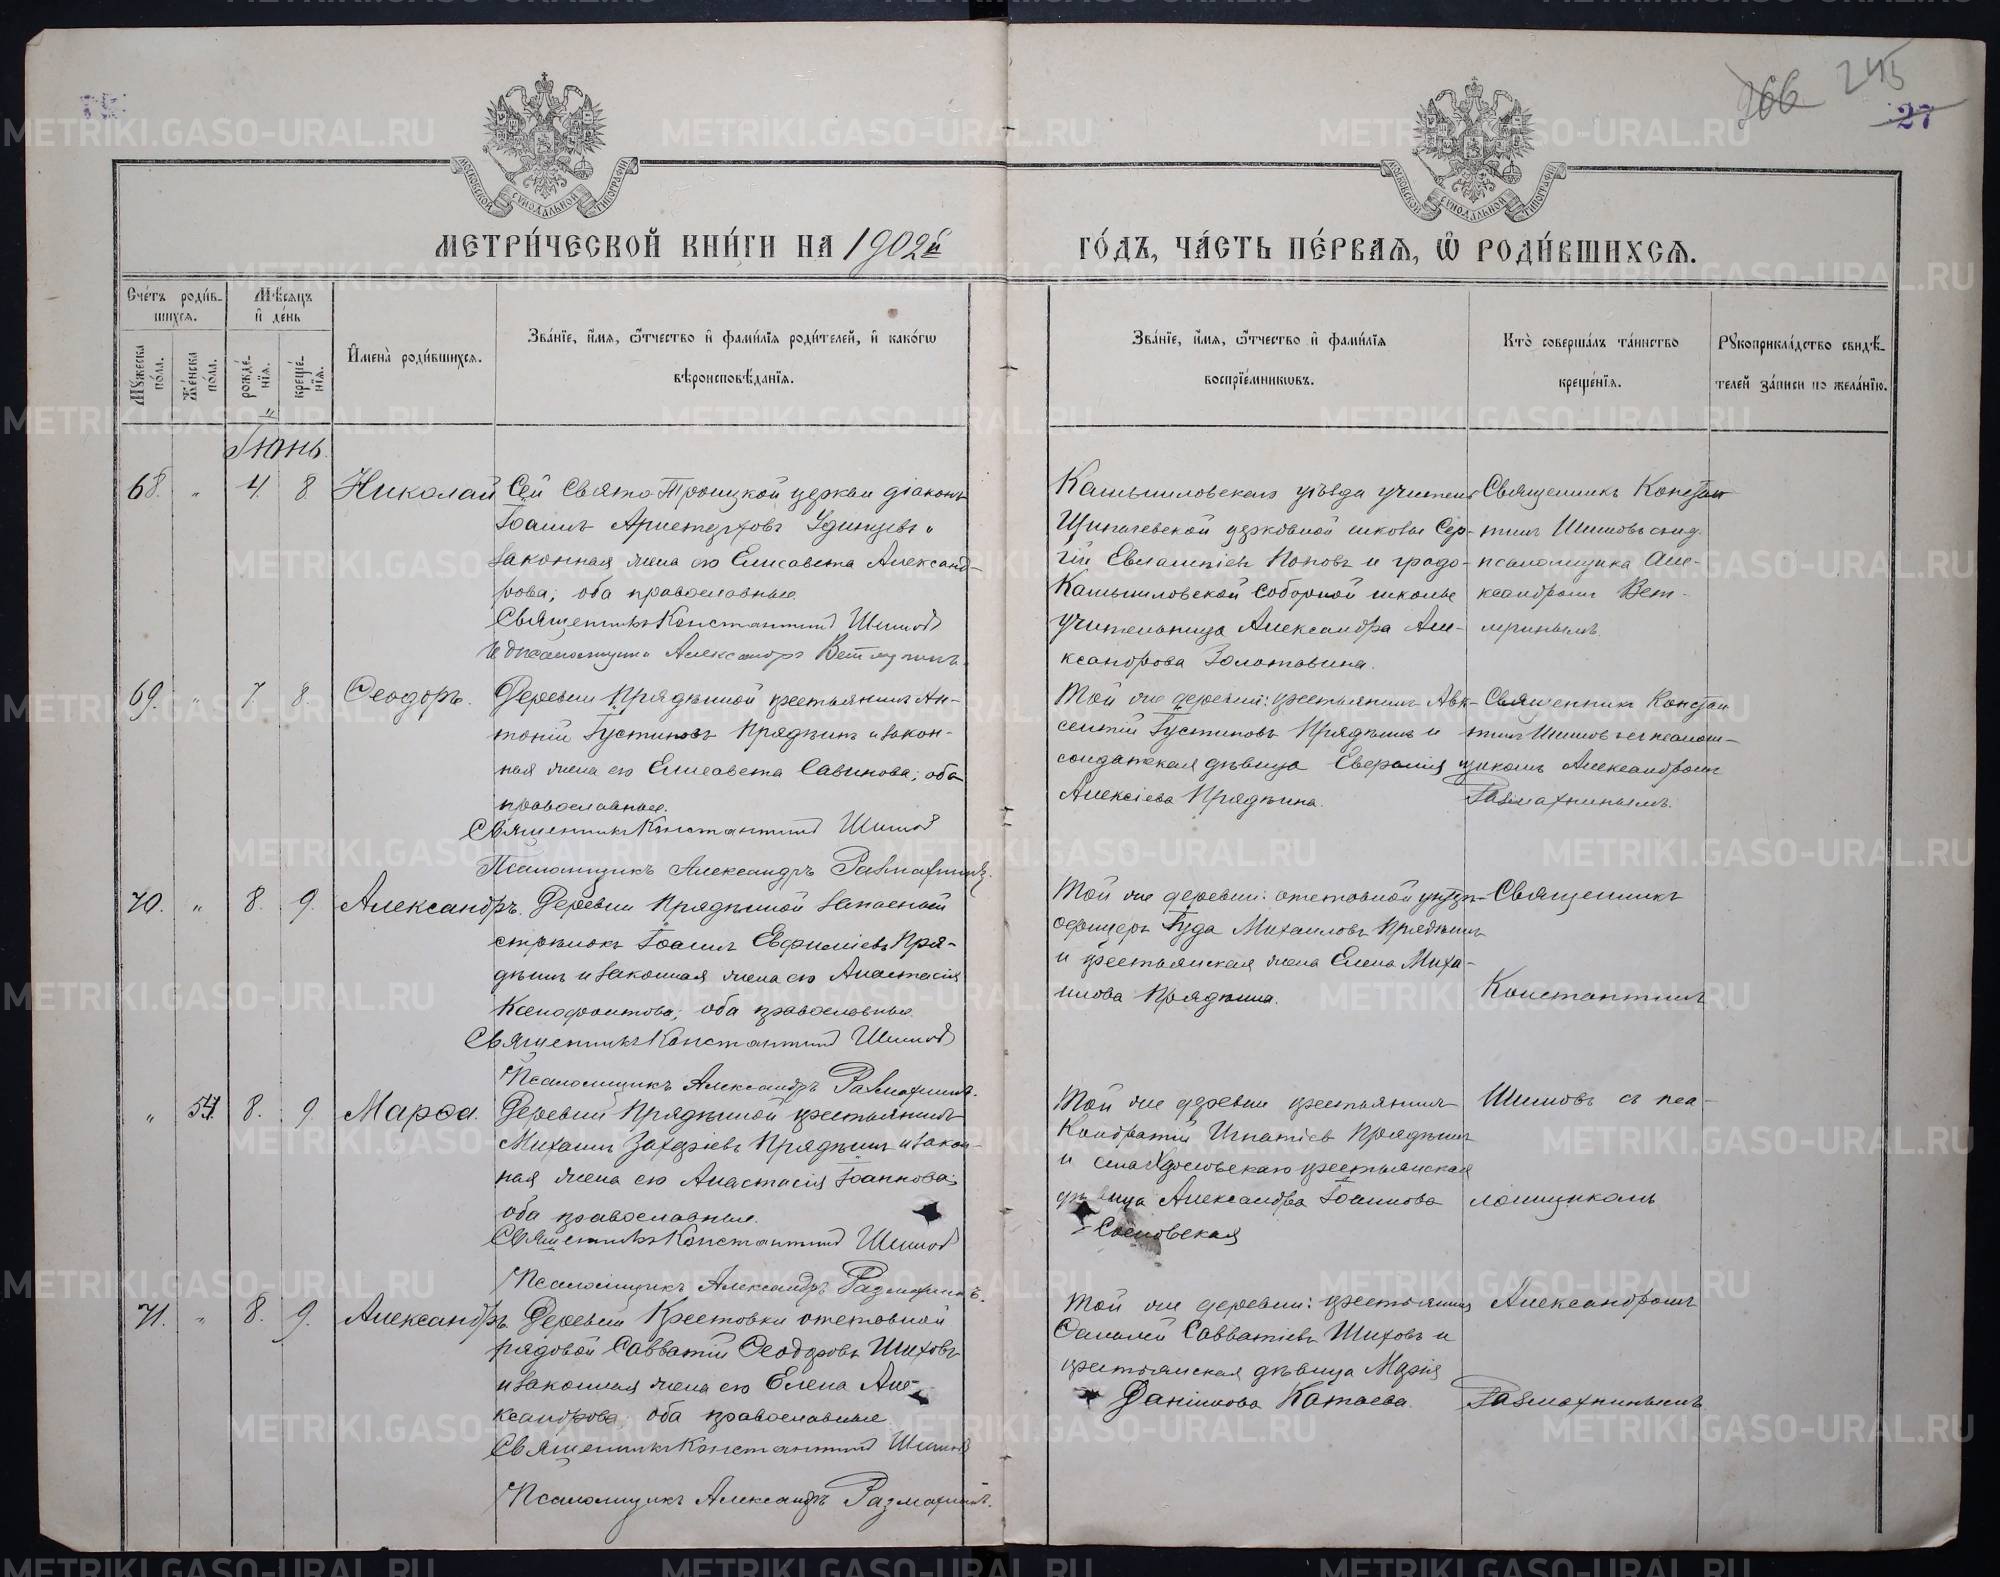 266 245
27
МОСКОВСКОЙ СѴНОДАЛЬНОЙ ТИПОГРАФІИ
МОСКОВСКОЙ СѴНОДАЛЬНОЙ ТИПОГРАФІИ
МЕТРИ́ЧЕСКОЙ КНИ́ГИ НА 1902й
ГО́ДЪ, ЧА́СТЬ ПЕ́РВАѦ, Ѽ РОДИ́ВШИХСѦ.
Сче́тъ роди́в-
шихсѧ.
Мѣ́сѧцъ
и҆ де́нь
И҆мена̀ роди́вшихсѧ.
Зва́нїе, и҆́мѧ, ѻ҆́тчество и҆ фами́лїѧ роди́телей, и҆ како́гѡ
вѣроисповѣ́данїѧ.
Зва́нїе, и҆́мѧ, ѻ҆́тчество и҆ фами́лїѧ
воспрїе́мникѡвъ.
Кто̀ соверша́лъ та́инство
креще́нїѧ.
Рꙋкоприкла́дство свидѣ́-
телей за́писи по жела́нїю.
Мꙋ́жеска
по́ла.
Же́нска
по́ла.
рожде́-
нїѧ.
креще́-
нїѧ.
Іюнь.
68. " 4. 8 Николай Сей Свято-Троицкой церкви діаконъ
Іоаннъ Аристарховъ Удинцевъ и
законная жена его Елисавета Александ-
рова; оба православные.
Священникъ Константинъ Шишовъ
Псаломщикъ Александръ
Камышловскаго уѣзда учитель
Щипачевской церковной школы Сер-
гій Евлампіевъ Поповъ и градо-
Камышловской Соборной школы
учительница Александра Але-
ксандрова Золотавина.
Священникъ Констан
тинъ Шишовъ съ и.д.
псаломщика Але-
ксандромъ Вет-
69. " 7. 8. Ѳеодоръ. Деревни Прядѣиной крестьянинъ Ан-
тоній Іустиновъ Прядѣинъ и закон-
ная жена его Елисавета Савинова; оба
православные.
Священникъ Константинъ Шишовъ
Псаломщикъ Александръ Размахнинъ.
Той же деревни: крестьянинъ Авк-
сентій Іустиновъ Прядѣинъ и
солдатская дѣвица Евфалія
Алексіева Прядѣина.
Священникъ Констан
тинъ Шишовъ съ псалом-
щикомъ Александромъ
Размахнинымъ.
70. " 8. 9. Александръ. Деревни Прядѣиной запасный
стрѣлокъ Іоаннъ Евфиміевъ Пря-
дѣинъ и законная жена его Анастасія
Ксенофонтова; оба православные.
Священникъ Константинъ Шишовъ
Псаломщикъ Александръ Размахнинъ.
Той же деревни: отставной унтеръ-
офицеръ Іуда Михаиловъ Прядѣинъ
и крестьянская жена Елена Миха-
илова Прядѣина.
Священникъ
Константинъ
" 54. 8. 9 Марѳа. Деревни Прядѣиной крестьянинъ
Михаилъ Захаріевъ Прядѣинъ и закон-
ная жена его Анастасія Іоаннова;
оба православные.
Священникъ Константинъ Шишовъ
Псаломщикъ Александръ Размахнинъ.
Той же деревни крестьянинъ
Кондратій Игнатіевъ Прядѣинъ
и села крестьянская
дѣвица Александра Іоаннова
Сосновская
Шишовъ съ пса-
ломщикомъ
71. " 8. 9. Александръ Деревни Крестовки отставной
рядовой Савватій Ѳеодоровъ Шиховъ
и законная жена его Елена Але-
ксандрова; оба православные.
Священникъ Константинъ Шишовъ
Псаломщикъ Александръ Размахнинъ.
Той же деревни: крестьянинъ
Савватіевъ Шиховъ и
крестьянская дѣвица Марія
Даніилова Катаева.
Александромъ
Размахнинымъ
METRIKI.GASO-URAL.RU